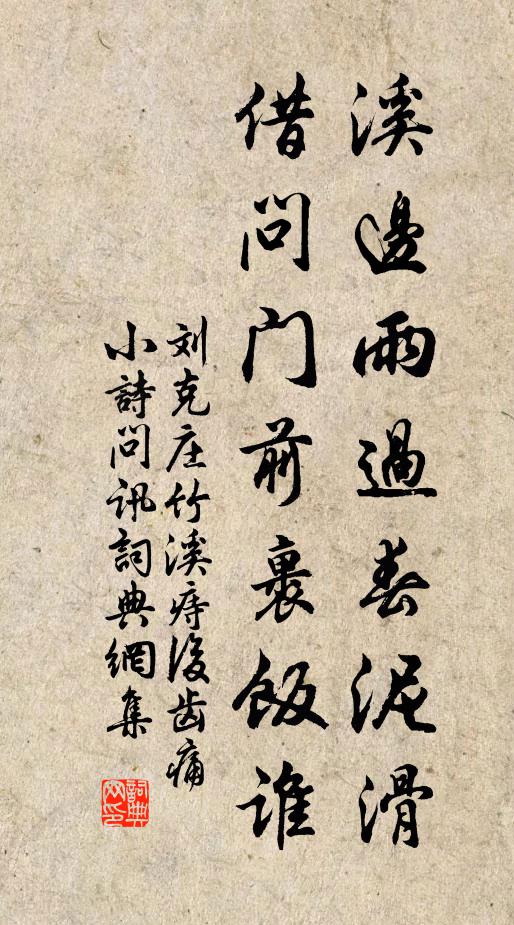 溪邊雨過春泥滑
借问门前裹飯谁
刘克庄竹溪痔後齿痛
小詩问讯詞典網集
詞典网印